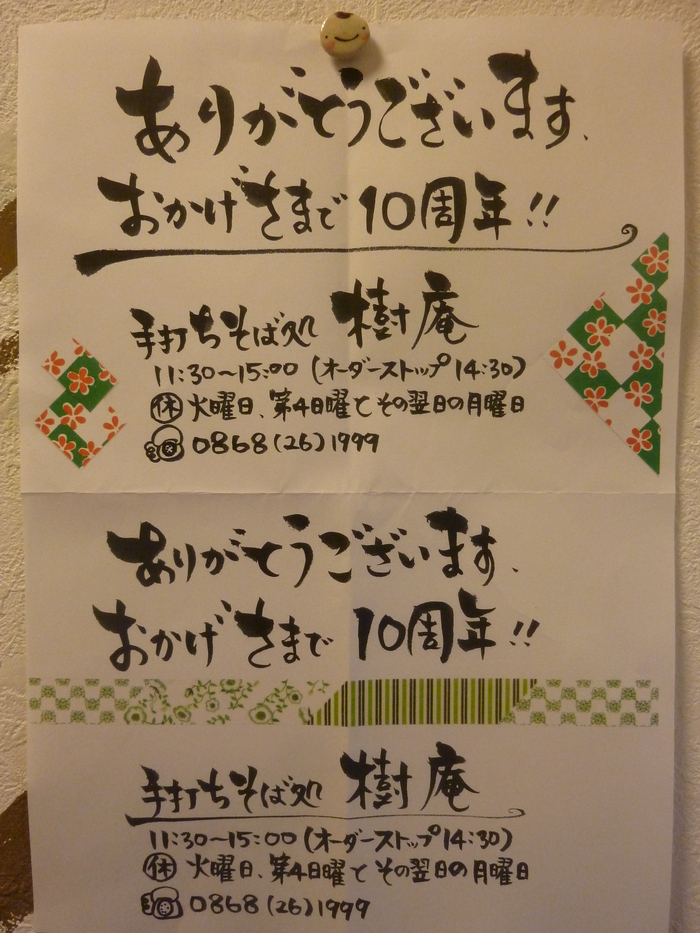 ありがとうございます、
おかげさまで10周年!!
手打ちそば処 樹庵
11:30〜15:00 (オーダーストップ14:30)
休 火曜日、第4日曜とその翌日の月曜日
0868(26)1999
ありがとうございます、
おかげさまで10周年!!
手打ちそば処 樹庵
11:30〜15:00 (オーダーストップ14:30)
休 火曜日、第4日曜とその翌日の月曜日
0868(26)1999